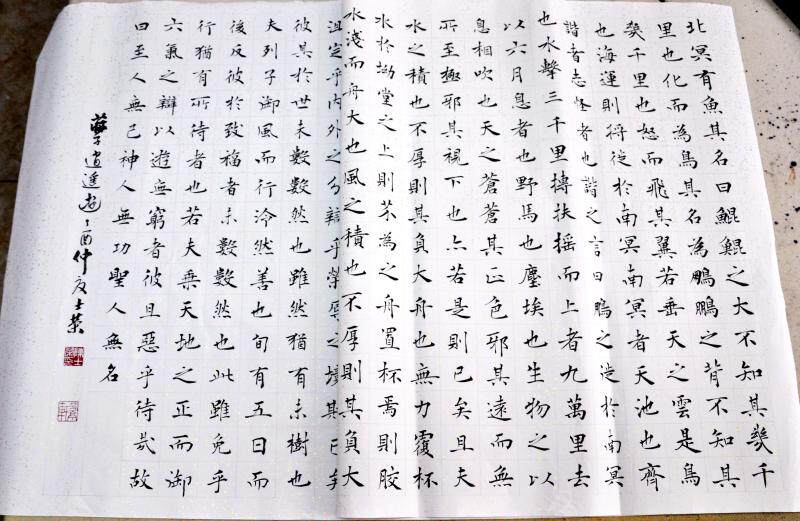 北冥有魚其名曰鯤鯤之大不知其幾千
里也化而為鳥其名為鵬鵬之背不知其
幾千里也怒而飛其翼若垂天之雲是鳥
也海運則將徙於南冥南冥者天池也齊
諧者志怪者也諧之言曰鵬之徙於南冥
也水擊三千里摶扶搖而上者九萬里去
以六月息者也野馬也塵埃也生物之以
息相吹也天之蒼蒼其正色邪其遠而無
所至極邪其視下也亦若是則已矣且夫
水之積也不厚則其負大舟也無力覆杯
水於坳堂之上則芥為之舟置杯焉則膠
水淺而舟大也風之積也不厚則其負大
沮定乎內外之分辯乎榮辱之境其已乎
彼其於世未數數然也雖然猶有未樹也
夫列子御風而行泠然善也旬有五日而
後反彼於致福者未數數然也此雖免乎
行猶有所待者也若夫乘天地之正而御
六氣之辯以遊無窮者彼且惡乎待哉故
曰至人無己神人無功聖人無名
逍遙遊丁酉仲夏士榮